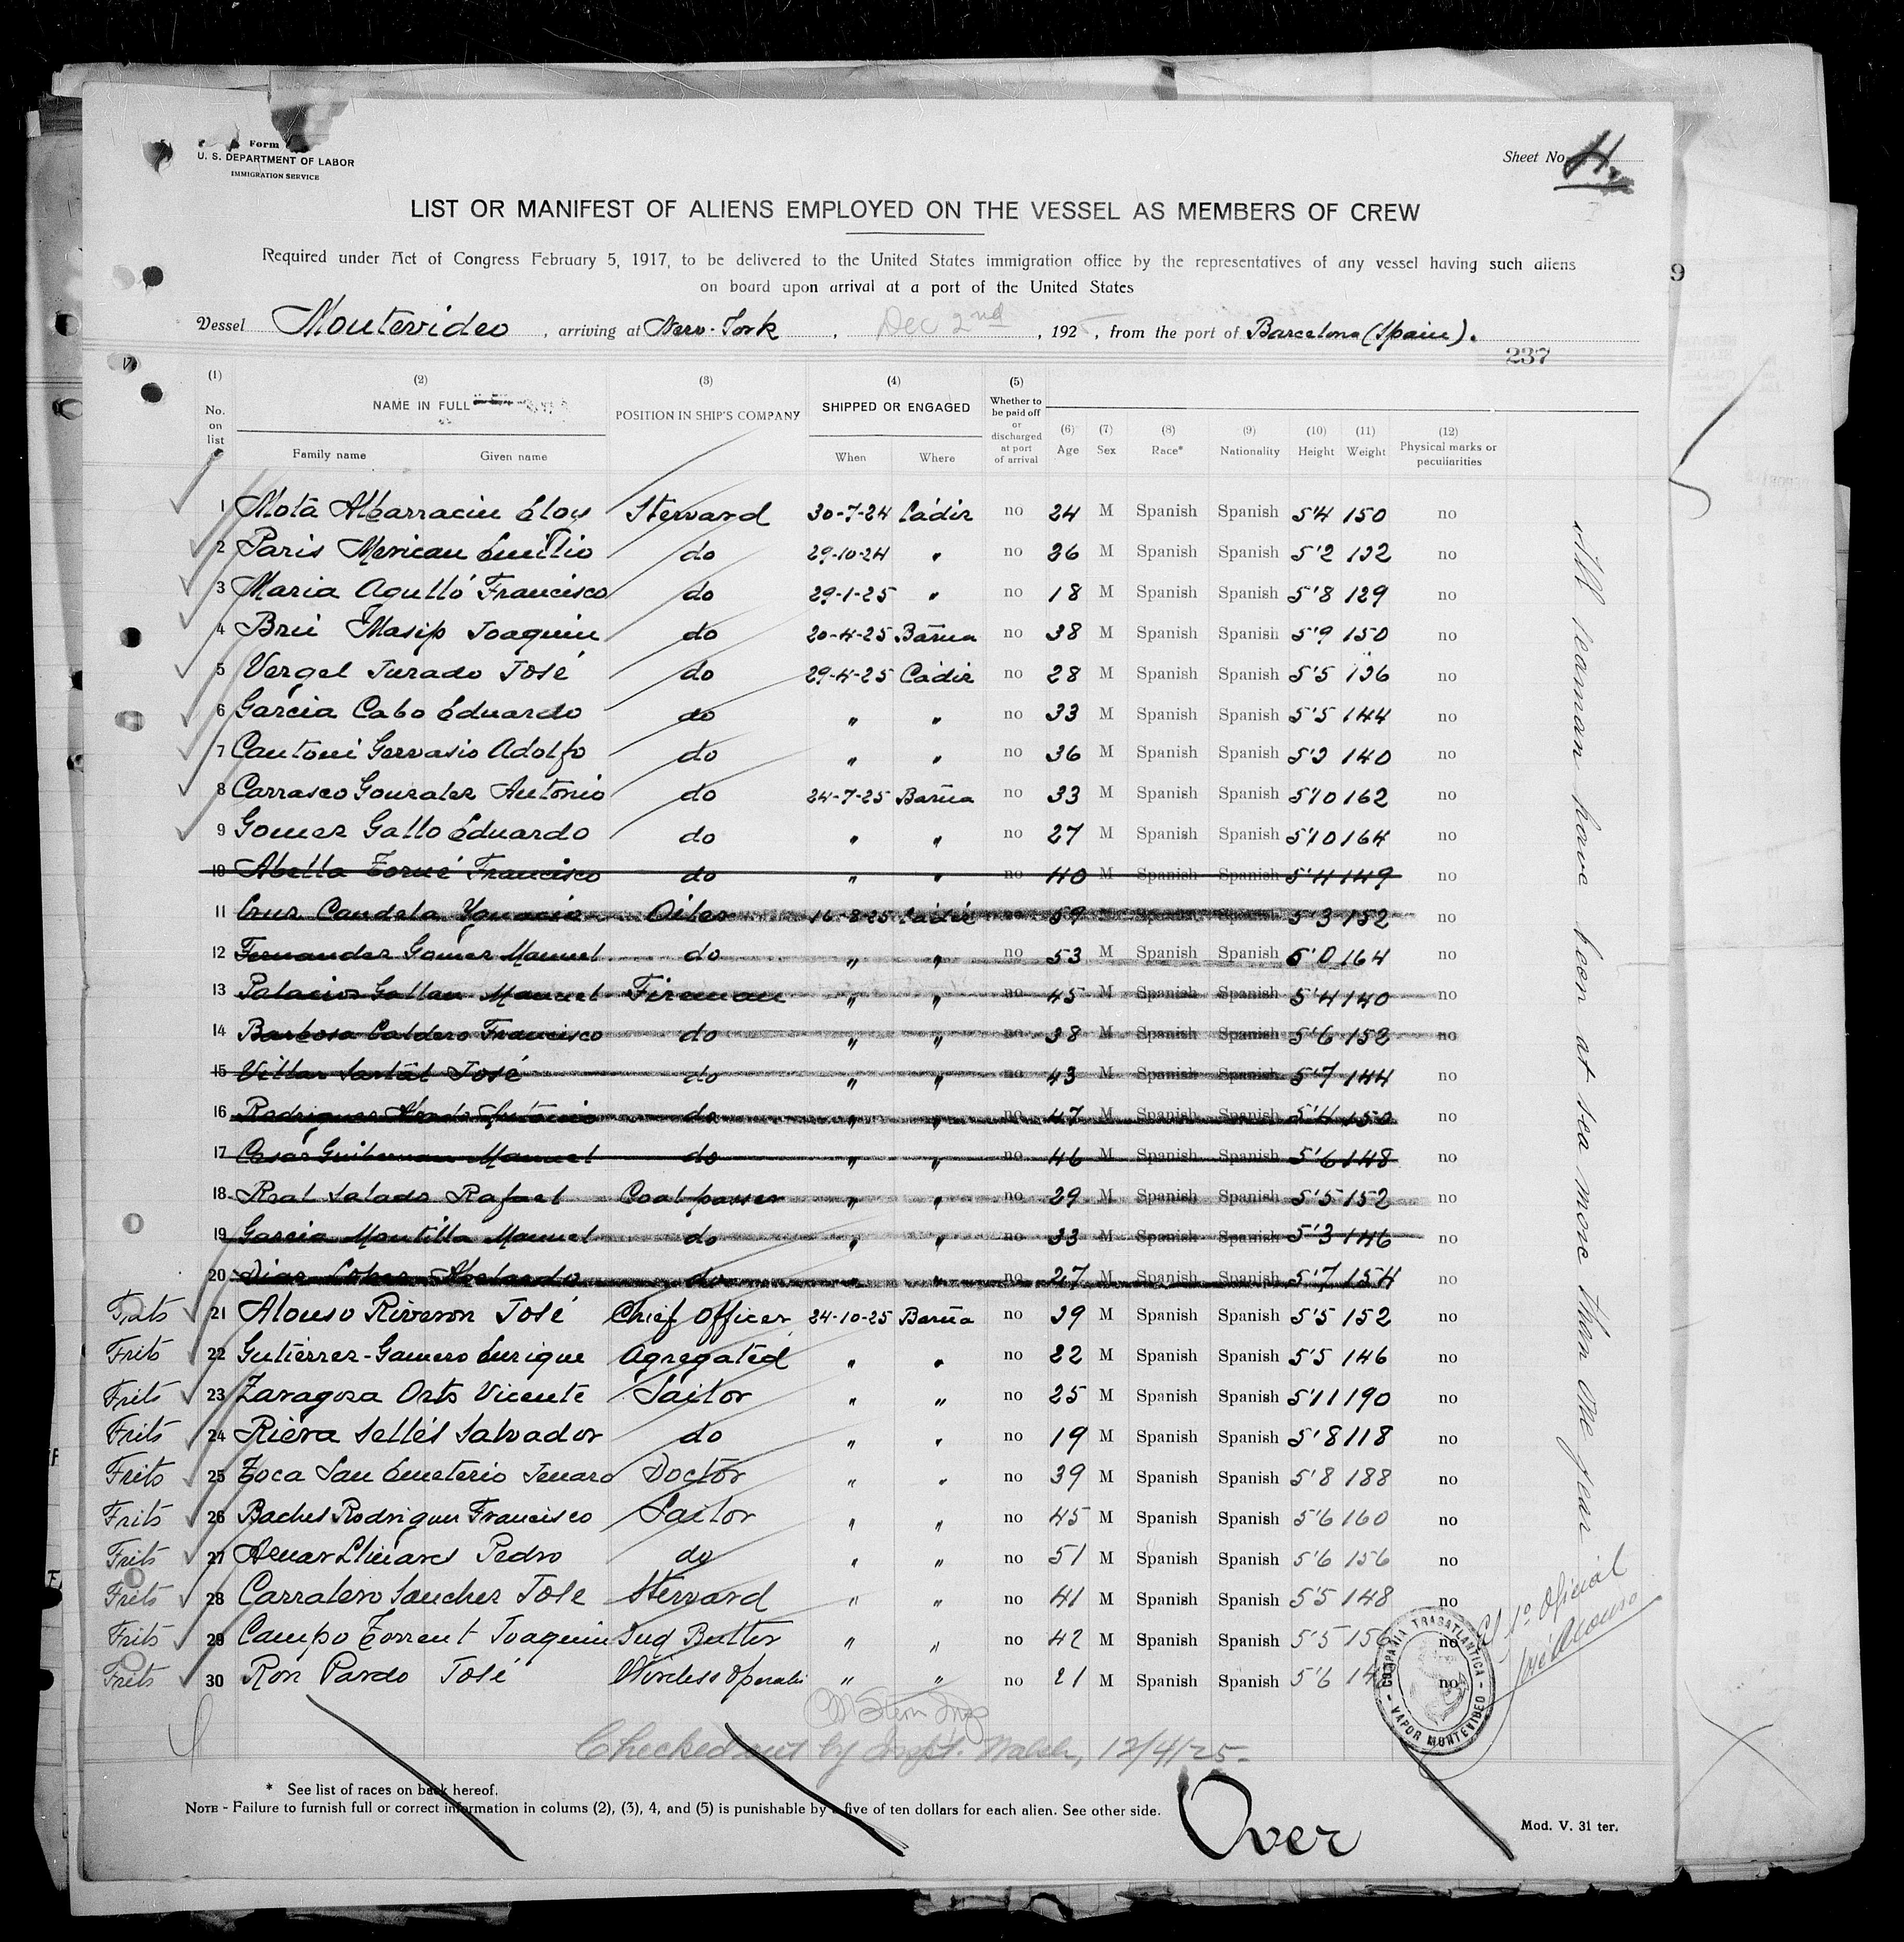 Form
U. S. DEPARTMENT OF LABOR
IMMIGRATION SERVICE
Sheet No. 4.
LIST OR MANIFEST OF ALIENS EMPLOYED ON THE VESSEL AS MEMBERS OF CREW
Required under Act of Congress February 5, 1917, to be delivered to the United States immigration office by the representatives of any vessel having such aliens
on board upon arrival at a port of the United States
Vessel Montevideo, arriving at New-York, Dec 2nd, 1925, from the port of Barcelona (Spain).
237
(1) No. on list (2) NAME IN FULL Family name Given name (3) POSITION IN SHIP'S COMPANY (4) SHIPPED OR ENGAGED When Where (5) Whether to be paid off or discharged at port of arrival (6) Age (7) Sex (8) Race* (9) Nationality (10) Height (11) Weight (12) Physical marks or peculiarities
1 Mota Albarracin Eloy Steward 30-7-24 Cádiz no 24 M Spanish Spanish 5'4 150 no
2 Paris Merican Emilio do 29-10-24 " no 36 M Spanish Spanish 5'2 132 no
3 Maria Agulló Francisco do 29-1-25 " no 18 M Spanish Spanish 5'8 129 no
4 Brú Masip Joaquin do 20-4-25 Barña no 38 M Spanish Spanish 5'9 150 no
5 Vergel Jurado José do 29-4-25 Cádiz no 28 M Spanish Spanish 5'5 136 no
6 Garcia Cabo Eduardo do " " no 33 M Spanish Spanish 5'5 144 no
7 Cantoni Gervasio Adolfo do " " no 36 M Spanish Spanish 5'3 140 no
8 Carrasco Gonzalez Antonio do 24-7-25 Barña no 33 M Spanish Spanish 5'10 162 no
9 Gomez Gallo Eduardo do " " no 27 M Spanish Spanish 5'10 164 no
10 Abella Torné Francisco do " " no 40 M Spanish Spanish 5'4 149 no
11 Cruz Candela Ygnacio Oiler 16-8-25 Cádiz no 59 M Spanish Spanish 5'3 152 no
12 Fernandez Gomez Manuel do " " no 53 M Spanish Spanish 6'0 164 no
13 Palacios Gallan Manuel Fireman " " no 45 M Spanish Spanish 5'4 140 no
14 Barbosa Caldero Francisco do " " no 38 M Spanish Spanish 5'6 152 no
15 Villar José do " " no 43 M Spanish Spanish 5'7 144 no
16 Rodriguez Antonio do " " no 47 M Spanish Spanish 5'4 150 no
17 Manuel do " " no 46 M Spanish Spanish 5'6 148 no
18 Real Salado Rafael Coal passer " " no 29 M Spanish Spanish 5'5 152 no
19 Garcia Montilla Manuel do " " no 33 M Spanish Spanish 5'3 146 no
20 Diaz Lopez Abelardo do " " no 27 M Spanish Spanish 5'7 154 no
Frits 21 Alonso Riveron José Chief Officer 24-10-25 Barña no 39 M Spanish Spanish 5'5 152 no
Frits 22 Gutiérrez-Gamero Enrique Agregated " " no 22 M Spanish Spanish 5'5 146 no
Frits 23 Zaragoza Orts Vicente Sailor " " no 25 M Spanish Spanish 5'11 190 no
Frits 24 Riera Sellés Salvador do " " no 19 M Spanish Spanish 5'8 118 no
Frits 25 Toca San Emeterio Jenaro Doctor " " no 39 M Spanish Spanish 5'8 188 no
Frits 26 Baches Rodriguez Francisco Sailor " " no 45 M Spanish Spanish 5'6 160 no
Frits 27 Aznar Llinares Pedro do " " no 51 M Spanish Spanish 5'6 156 no
Frits 28 Carralero Sanchez Jose Steward " " no 41 M Spanish Spanish 5'5 148 no
Frits 29 Campo Torrent Joaquin 2nd Butler " " no 42 M Spanish Spanish 5'5 156 no
Frits 30 Ron Pardo José Wireless Operator " " no 21 M Spanish Spanish 5'6 no
All seaman have been at sea more than one year
El 1º Oficial
José Alonso
COMPAÑIA TRASATLANTICA - VAPOR MONTEVIDEO -
Checked out by Inspt. Walsh, 12/4/25.
* See list of races on back hereof.
NOTE - Failure to furnish full or correct information in colums (2), (3), 4, and (5) is punishable by a five of ten dollars for each alien. See other side.
Over
Mod. V. 31 ter.
9